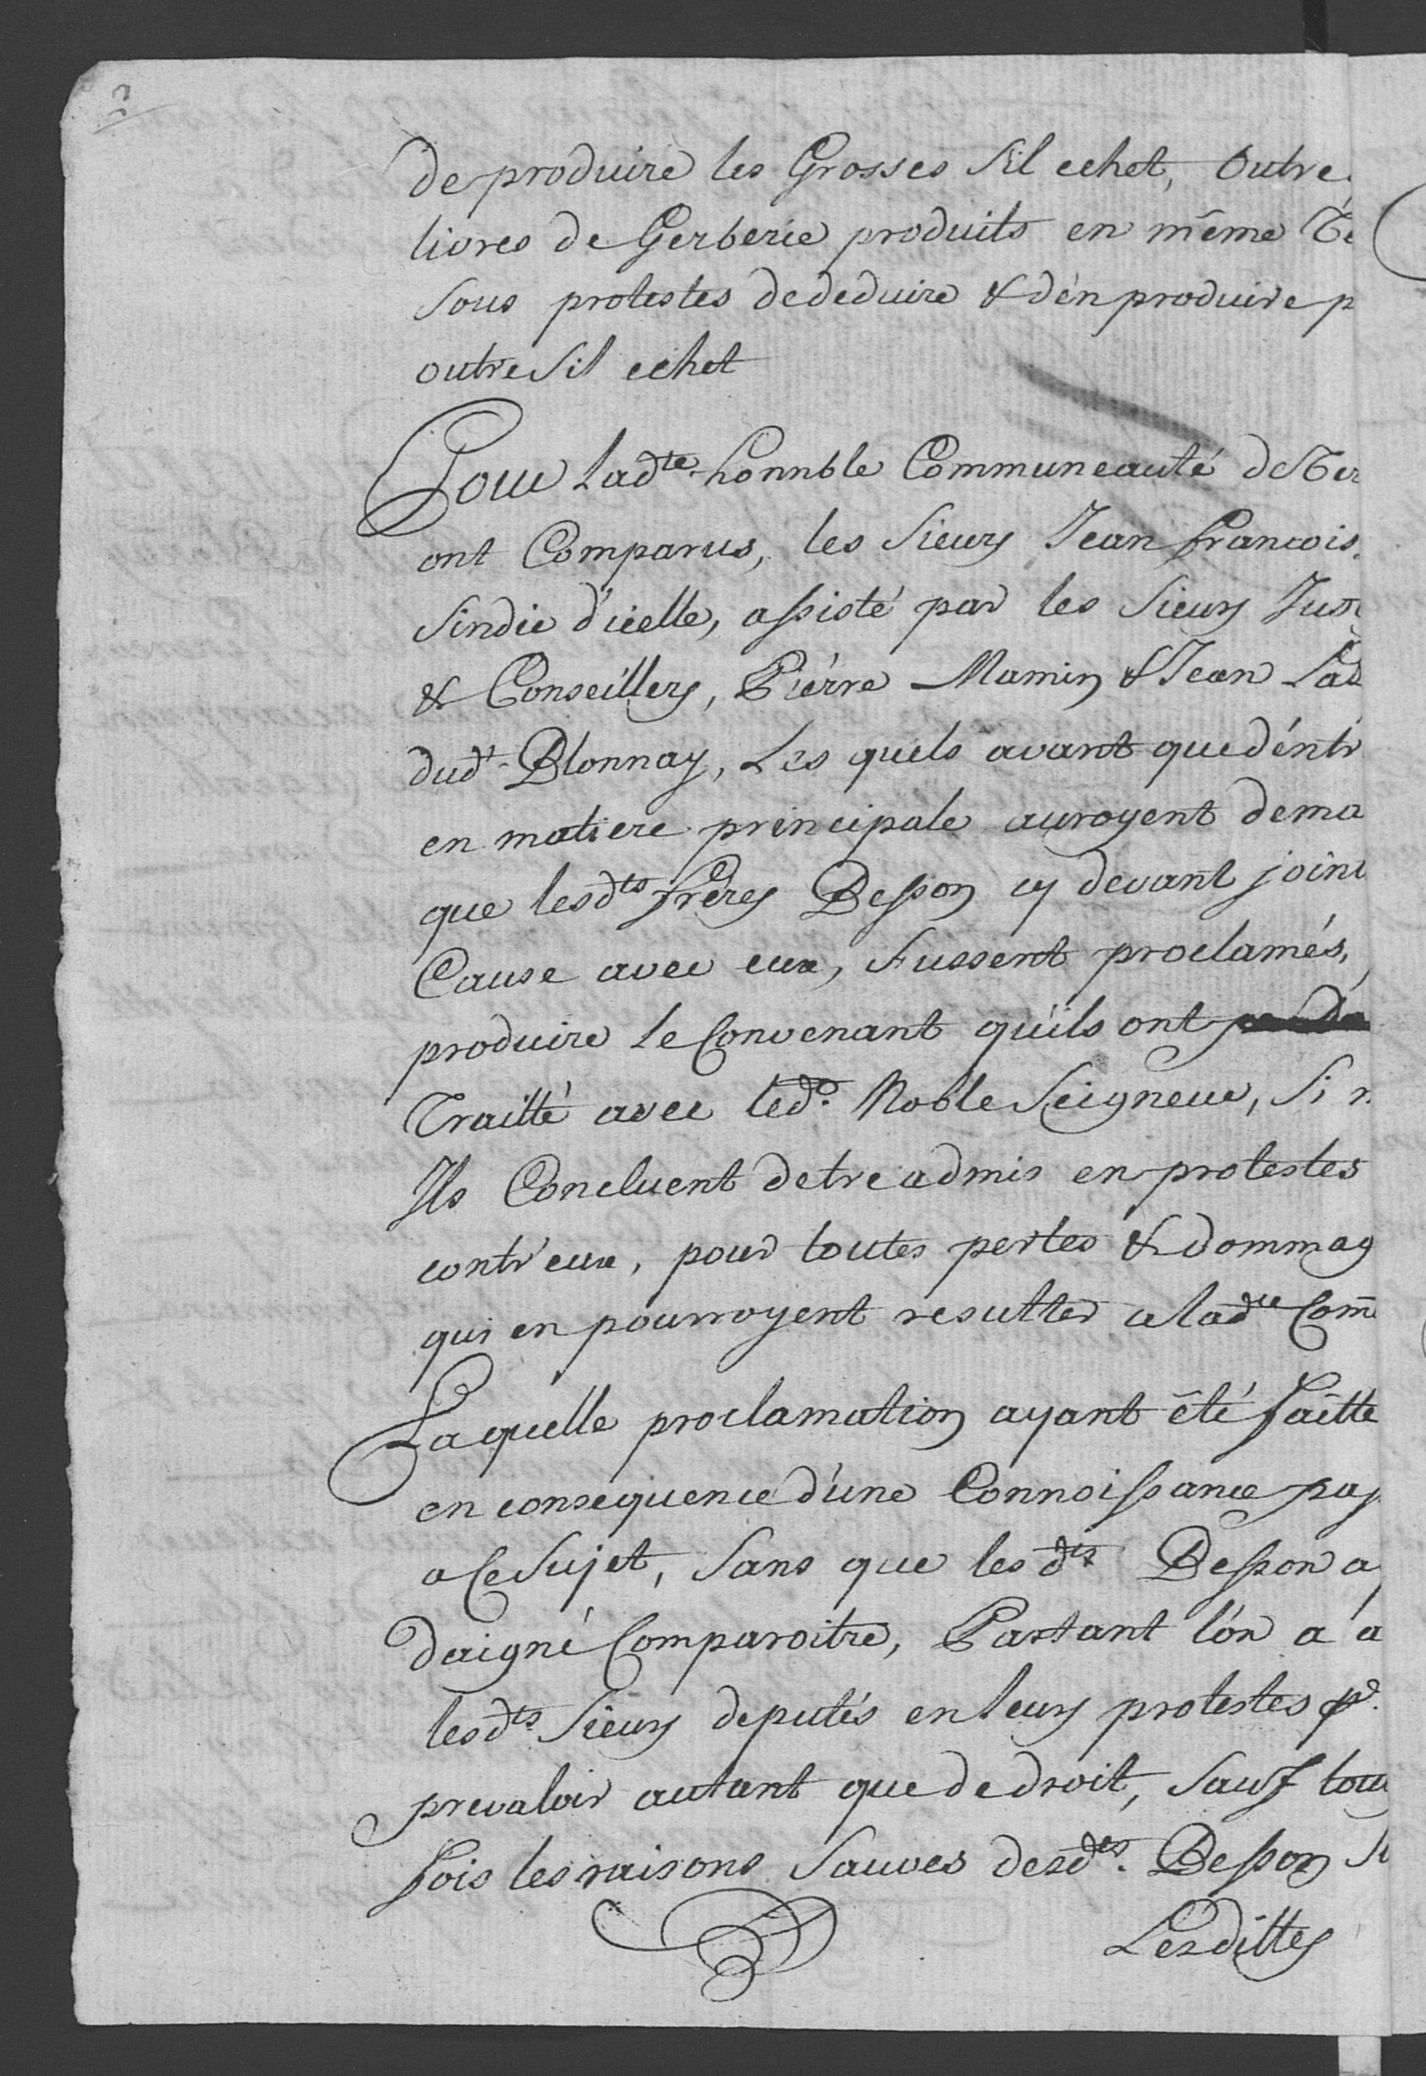 2
de produire les Grosses S'il echet, outre
livres de Gerberie produits en même Te
Sous protestes de deduire & d'én produire p
outre S'il echet
Pour Ladte honnble Communeauté de Ter
ont Comparus, les Sieurs Jean francois
Sindic d'icelle, assisté par les Sieurs Just
& Conseillers, Piérre Mamin & Jean Lad
dudt Blonnay, Les quels avant que d'éntr
en matiere principale auroyent dema
que lesdts frères Besson cy devant joint
Cause avec eux, fussent proclamés,
produire le Convenant qu'ils ont
Traitté avec ledt Noble Seigneur, Si n
Ils Concluent detre admis en protestes
contr'eux, pour toutes pertes & dommag
qui en pourroyent resulter a ladte Com̄
Laquelle proclamation ayant été faitte
en consequence d'une Connoissance pas
a Ce Sujet, Sans que les dts Besson a
daigné Comparoitre, Partant l'ón a a
lesdts Sieurs deputés en leurs protestes pr
prevaloir autant que de droit, Sauf tou
fois les raisons Sauves desdts Besson Si
Lesdittes